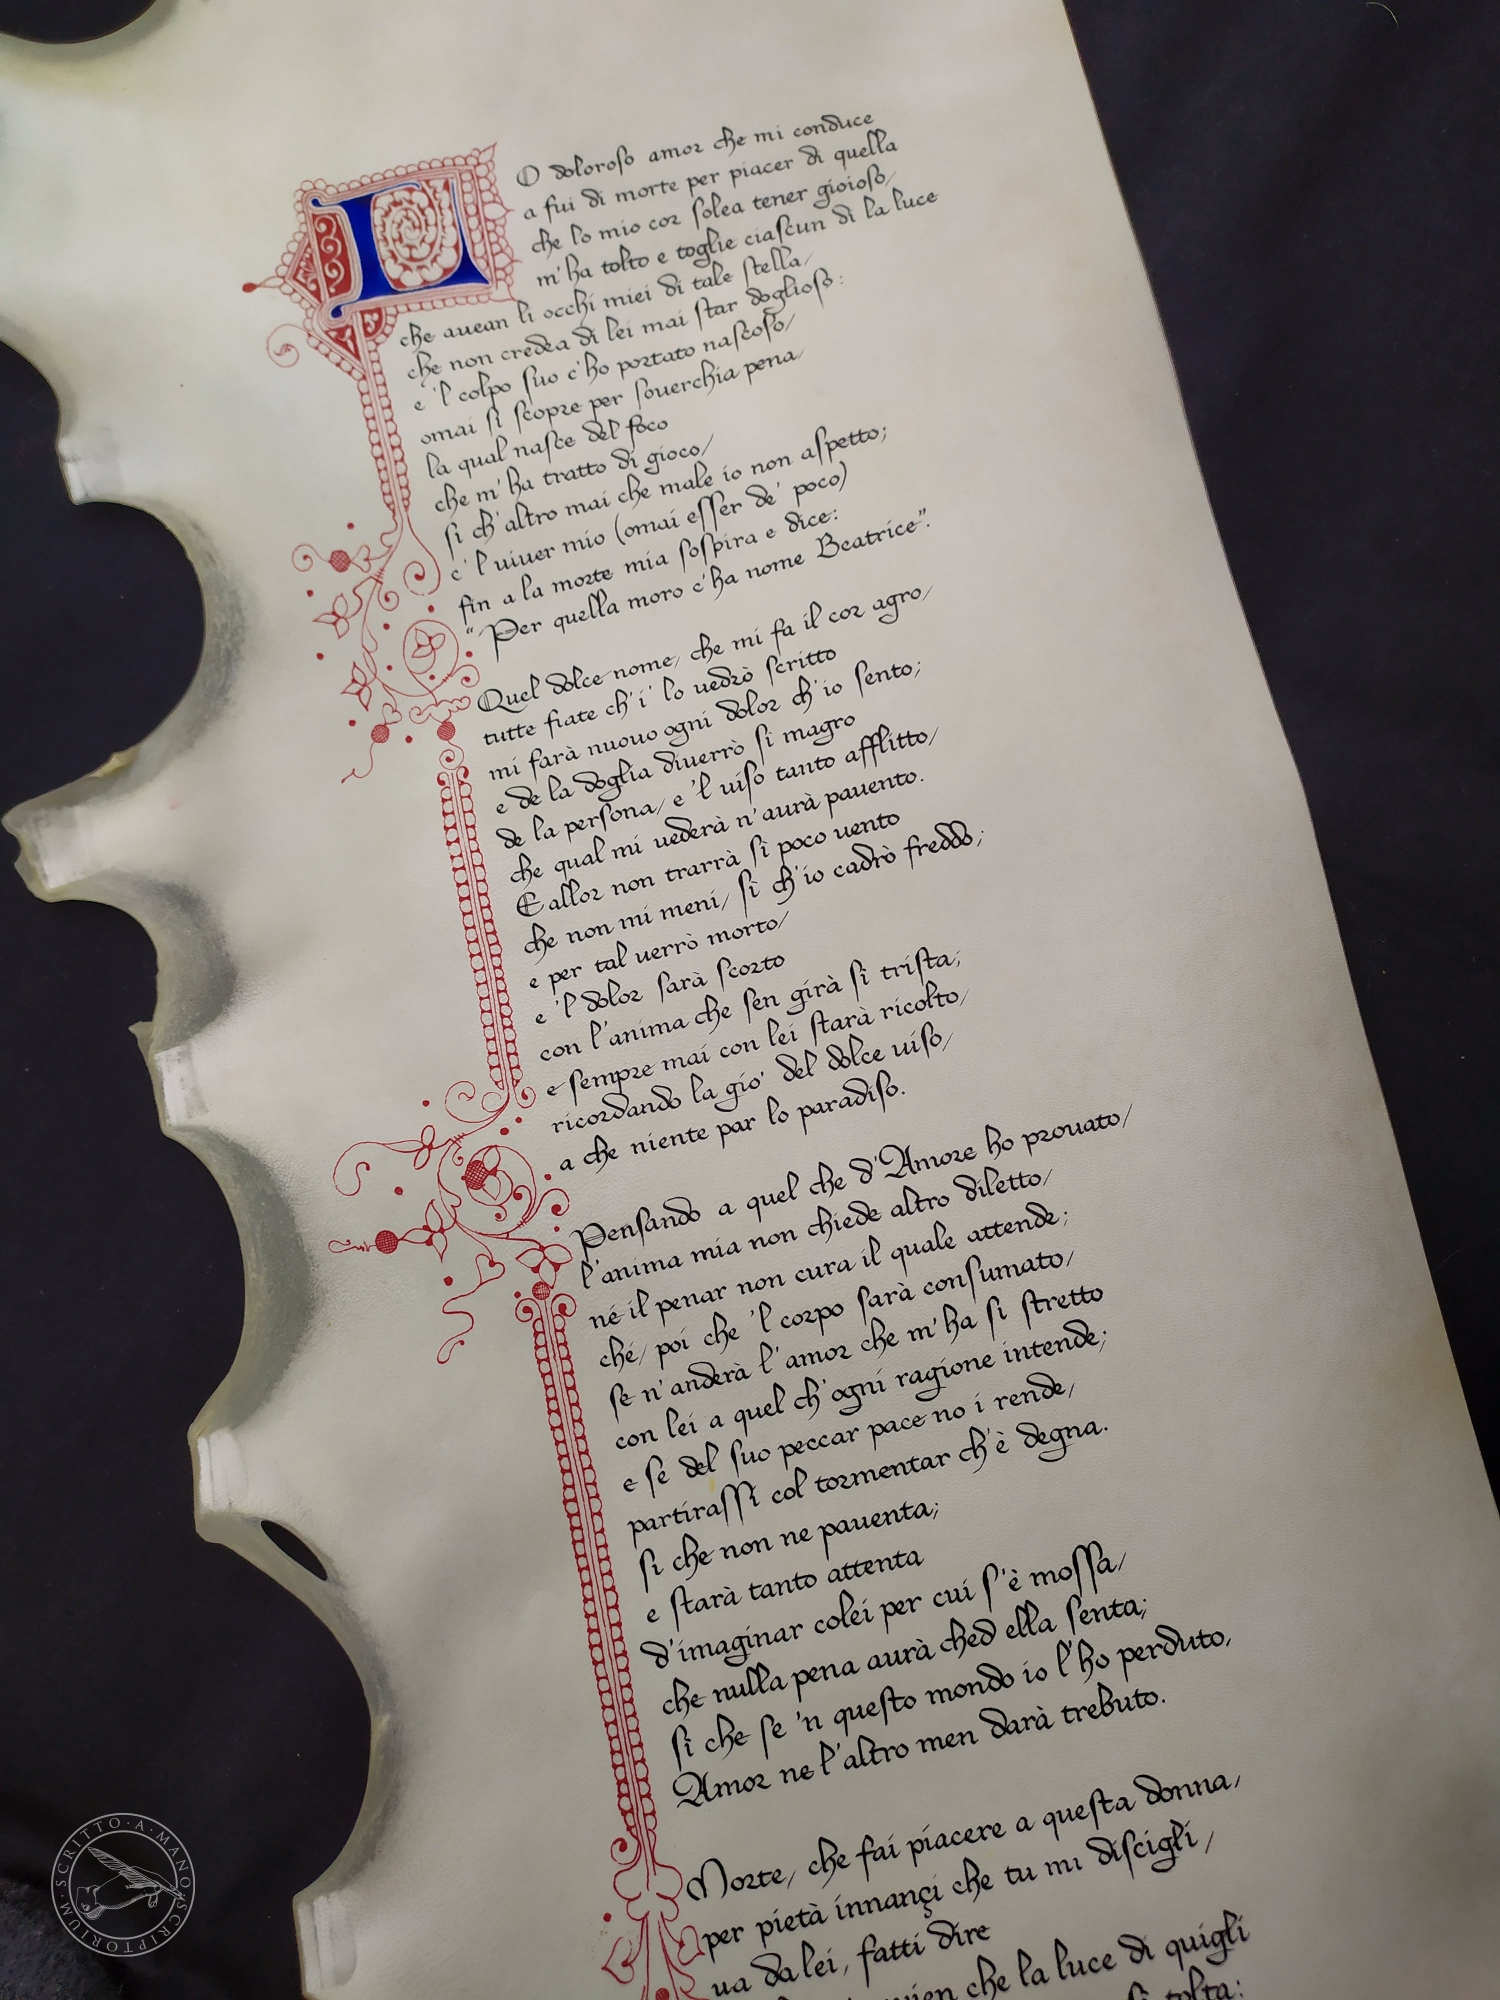 LO doloroso amor che mi conduce
a fui di morte per piacer di quella
che lo mio cor solea tener gioioso/
m'ha tolto e toglie ciascun dì la luce
che auean li occhi miei di tale stella/
che non credea di lei mai star doglioso:
e 'l colpo suo c'ho portato nascoso/
omai si scopre per souerchia pena/
la qual nasce del foco
che m'ha tratto di gioco/
sì ch'altro mai che male io non aspetto;
c'l uiuer mio (omai esser de' poco)
fin a la morte mia sospira e dice:
“Per quella moro c'ha nome Beatrice”.
Quel dolce nome/ che mi fa il cor agro/
tutte fiate ch'i' lo uedrò scritto
mi farà nuouo ogni dolor ch'io sento;
e de la doglia diuerrò sì magro
de la persona/ e 'l uiso tanto afflitto/
che qual mi uederà n'aurà pauento.
E allor non trarrà sì poco uento
che non mi meni/ sì ch'io cadrò freddo;
e per tal uerrò morto/
e 'l dolor sarà scorto
con l'anima che sen girà sì trista;
e sempre mai con lei starà ricolto/
ricordando la gio' del dolce uiso/
a che niente par lo paradiso.
Pensando a quel che d'Amore ho prouato/
l'anima mia non chiede altro diletto/
né il penar non cura il quale attende;
ché/ poi che 'l corpo sarà consumato/
se n'anderà l'amor che m'ha sì stretto
con lei a quel ch'ogni ragione intende;
e se del suo peccar pace no i rende/
partirassi col tormentar ch'è degna.
sì che non ne pauenta;
e starà tanto attenta
d'imaginar colei per cui s'è mossa/
che nulla pena aurà ched ella senta;
sì che se 'n questo mondo io l'ho perduto,
Amor ne l'altro men darà trebuto.
Morte/ che fai piacere a questa donna/
per pietà innançi che tu mi discigli/
ua da lei/ fatti dire
che la luce di quigli
sì tolta:
SCRITTO·A·MANO·SCRIPTORIUM·